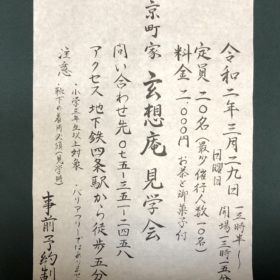 令和二年三月二九日
日曜日
一三時半〜
開場一三時一五分
定員 二〇名(最少催行人数一〇名)
料金 二、〇〇〇円 お茶と御菓子付
京町家 玄想庵 見学会
問い合わせ先 〇七五ー三五一ー二四五八
アクセス 地下鉄四条駅から徒歩五分
注意
・小学三年生以上対象
・バリアフリーではありません
・靴下の着用必須(見学時)
事前予約制